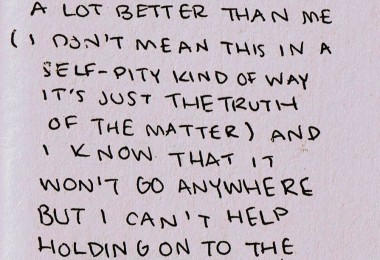 A LOT BETTER THAN ME
(I DON'T MEAN THIS IN A
SELF-PITY KIND OF WAY
IT'S JUST THE TRUTH
OF THE MATTER) AND
I KNOW THAT IT
WON'T GO ANYWHERE
BUT I CAN'T HELP
HOLDING ON TO THE